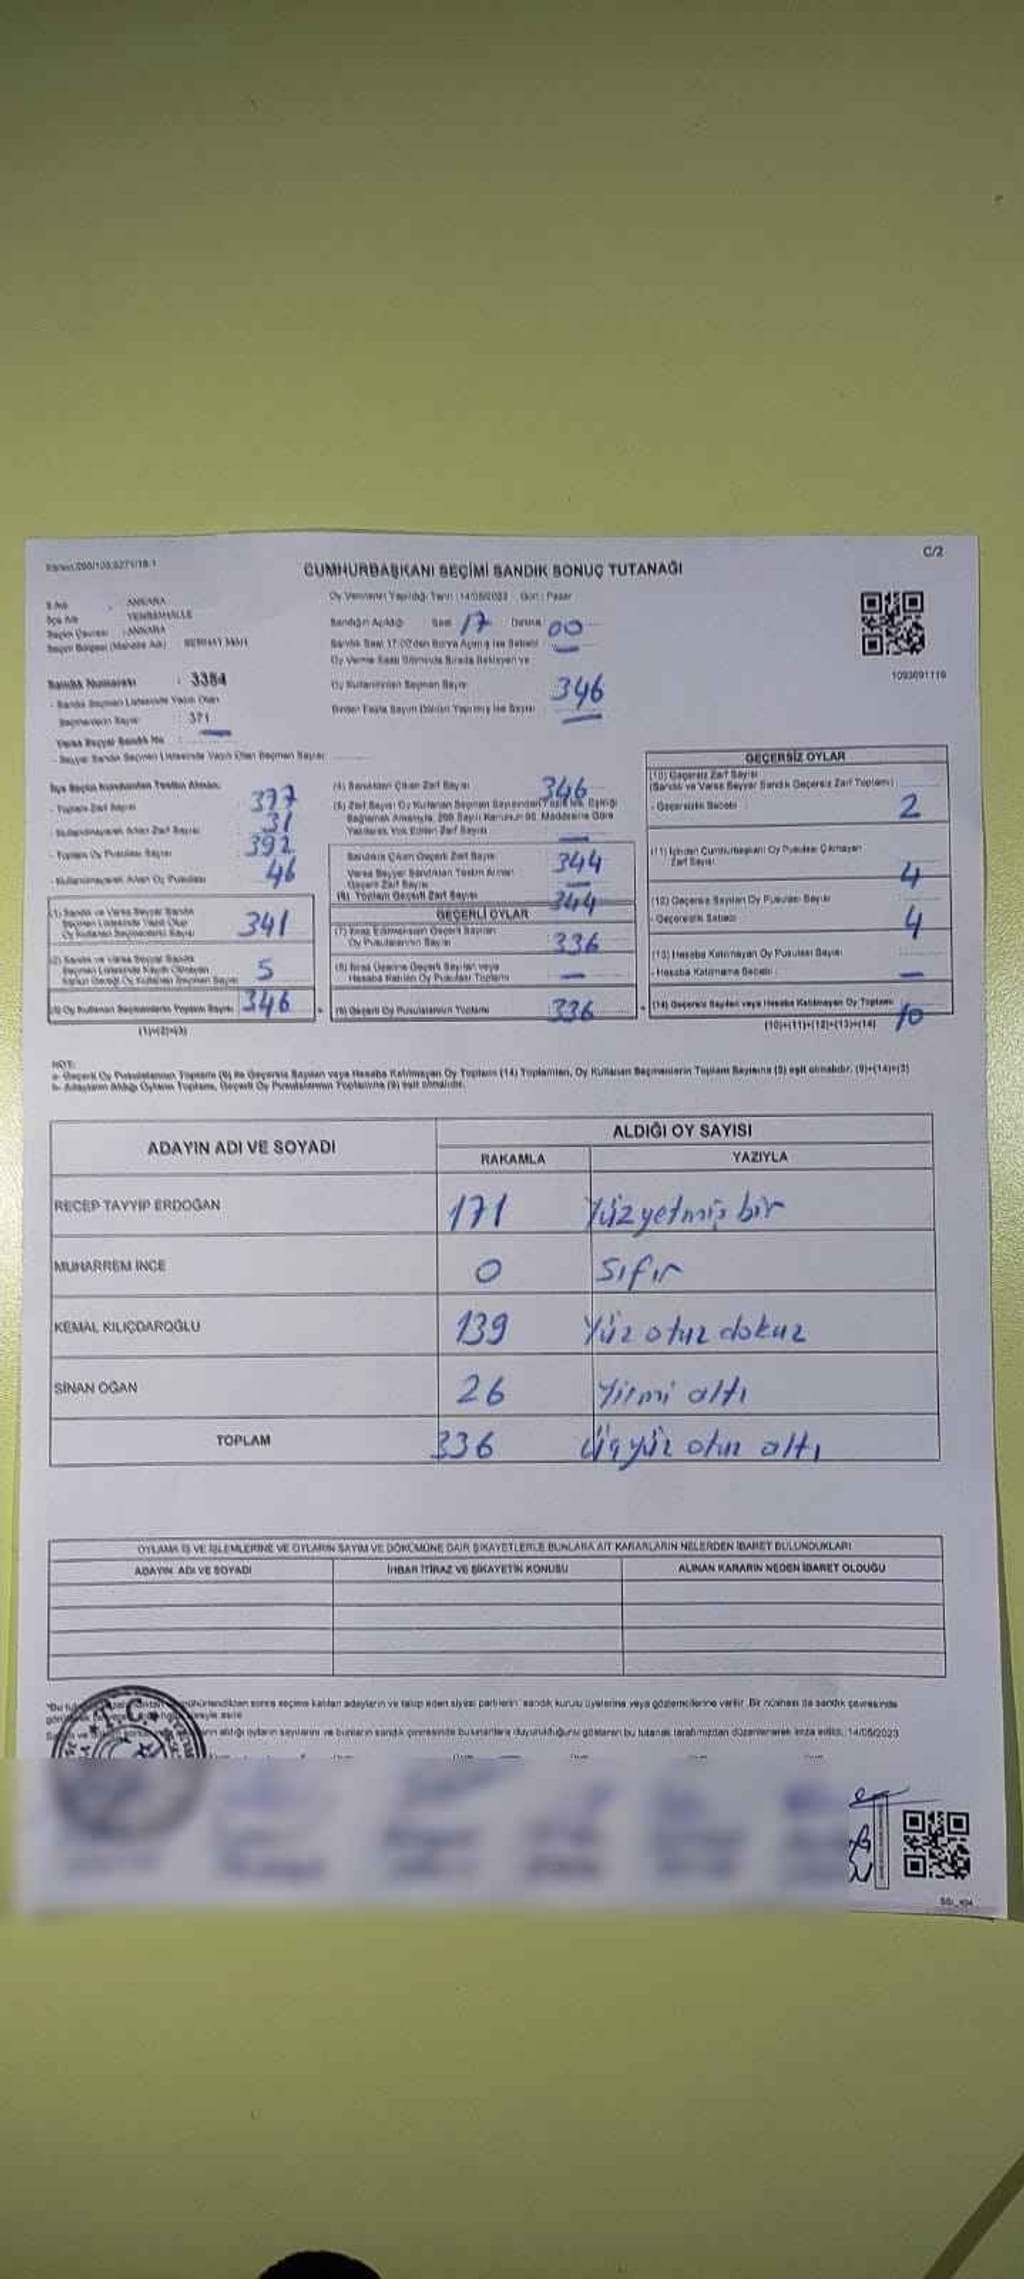 C/2
CUMHURBAŞKANI SEÇİMİ SANDIK SONUÇ TUTANAĞI
İl Adı : ANKARA
İlçe Adı : YENİMAHALLE
Seçim Çevresi : ANKARA
Seçim Bölgesi (Mahalle Adı)
Sandık Numarası : 3384
- Sandık Seçmen Listesinde Yazılı Olan
Seçmenlerin Sayısı : 371
Varsa Seyyar Sandık No
- Seyyar Sandık Seçmen Listesinde Yazılı Olan Seçmen Sayısı
Oy Vermenin Yapıldığı Tarih : 14/05/2023 Gün : Pazar
Sandığın Açıldığı Saat 17 Dakika 00
Sandık Saat 17:00'den Sonra Açılmış İse Sebebi —
Oy Verme Saati Bitiminde Sırada Bekleyen ve
Oy Kullandırılan Seçmen Sayısı 346
Birden Fazla Sayım Döküm Yapılmış İse Sayısı —
1093691119
İlçe Seçim Kurulundan Teslim Alınan;
- Toplam Zarf Sayısı 377
- Kullanılmayarak Artan Zarf Sayısı 31
- Toplam Oy Pusulası Sayısı 392
- Kullanılmayarak Artan Oy Pusulası 46
(1) Sandık ve Varsa Seyyar Sandık
Seçmen Listesinde Yazılı Olup
Oy Kullanan Seçmenlerin Sayısı 341
(2) Sandık ve Varsa Seyyar Sandık
Seçmen Listesinde Kayıtlı Olmayan
Kanun Gereği Oy Kullanan Seçmen Sayısı 5
(3) Oy Kullanan Seçmenlerin Toplam Sayısı 346
(1)+(2)=(3)
(4) Sandıktan Çıkan Zarf Sayısı 346
(5) Zarf Sayısı Oy Kullanan Seçmen Sayısından Fazla İse, Eşitliği
Sağlamak Amacıyla, 298 Sayılı Kanunun 98. Maddesine Göre
Yakılarak Yok Edilen Zarf Sayısı —
Sandıktan Çıkan Geçerli Zarf Sayısı 344
Varsa Seyyar Sandıktan Teslim Alınan
Geçerli Zarf Sayısı —
(6) Toplam Geçerli Zarf Sayısı 344
GEÇERLİ OYLAR
(7) İtiraz Edilmeksizin Geçerli Sayılan
Oy Pusulalarının Sayısı 336
(8) İtiraz Üzerine Geçerli Sayılan veya
Hesaba Katılan Oy Pusulası Toplamı —
(9) Geçerli Oy Pusulalarının Toplamı 336
GEÇERSİZ OYLAR
(10) Geçersiz Zarf Sayısı
(Sandık ve Varsa Seyyar Sandık Geçersiz Zarf Toplamı)
- Geçersizlik Sebebi 2
(11) İçinden Cumhurbaşkanı Oy Pusulası Çıkmayan
Zarf Sayısı 4
(12) Geçersiz Sayılan Oy Pusulası Sayısı
- Geçersizlik Sebebi 4
(13) Hesaba Katılmayan Oy Pusulası Sayısı
- Hesaba Katılmama Sebebi —
(14) Geçersiz Sayılan veya Hesaba Katılmayan Oy Toplamı 10
(10)+(11)+(12)+(13)=(14)
NOT:
a- Geçerli Oy Pusulalarının Toplamı (9) ile Geçersiz Sayılan veya Hesaba Katılmayan Oy Toplamı (14) Toplamları, Oy Kullanan Seçmenlerin Toplam Sayısına (3) eşit olmalıdır. (9)+(14)=(3)
b- Adayların Aldığı Oyların Toplamı, Geçerli Oy Pusulalarının Toplamına (9) eşit olmalıdır.
ADAYIN ADI VE SOYADI
ALDIĞI OY SAYISI
RAKAMLA YAZIYLA
RECEP TAYYİP ERDOĞAN 171 Yüz yetmiş bir
MUHARREM İNCE 0 Sıfır
KEMAL KILIÇDAROĞLU 139 Yüz otuz dokuz
SİNAN OĞAN 26 Yirmi altı
TOPLAM 336 üçyüz otuz altı
OYLAMA İŞ VE İŞLEMLERİNE VE OYLARIN SAYIM VE DÖKÜMÜNE DAİR ŞİKAYETLERLE BUNLARA AİT KARARLARIN NELERDEN İBARET BULUNDUKLARI
ADAYIN ADI VE SOYADI İHBAR İTİRAZ VE ŞİKAYETİN KONUSU ALINAN KARARIN NEDEN İBARET OLDUĞU
mühürlendikten sonra seçime katılan adayların ve talep eden siyasi partilerin sandık kurulu üyelerine veya gözlemcilerine verilir. Bir nüshası da sandık çevresinde
aldığı oyların sayılarını ve bunların sandık çevresinde bulunanlara duyurulduğunu gösteren bu tutanak tarafımızdan düzenlenerek imza edildi. 14/05/2023
T.C.